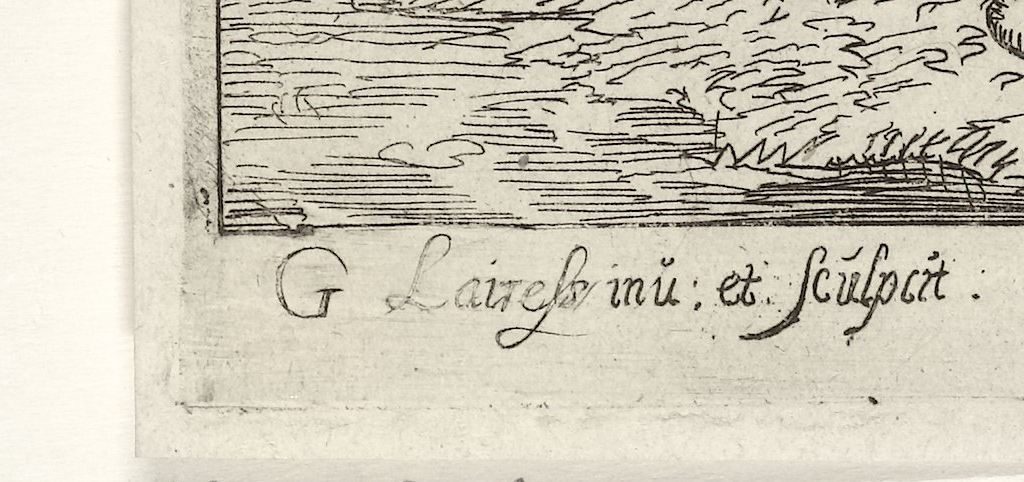 G Lairesse inŭ: et. sculpsit.